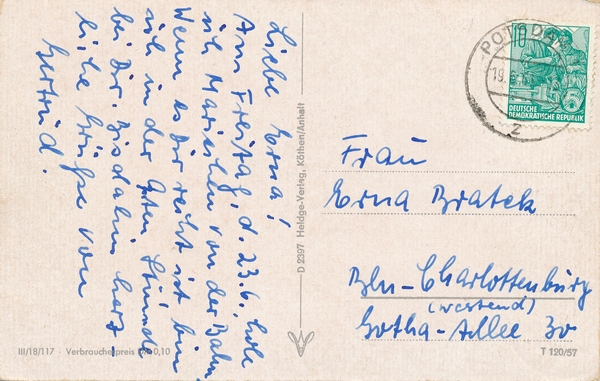 Liebe Erna!
Am Freitag, d. 23.6. hole
ich Mariechen von der Bahn.
Wenn es Dir recht ist bin
ich in der guten Stunde
bei Dir. Bisdahin herz-
liche Grüße von
Gertrud.
D 2397 Heldge-Verlag, Köthen/Anhalt
III/18/117 · Verbraucherpreis 0,10
POTSDAM
19.6.
2
10
DEUTSCHE
DEMOKRATISCHE REPUBLIK
Frau
Erna Bratek
Bln-Charlottenburg
(Westend)
Gotha-Allee 30
T 120/57